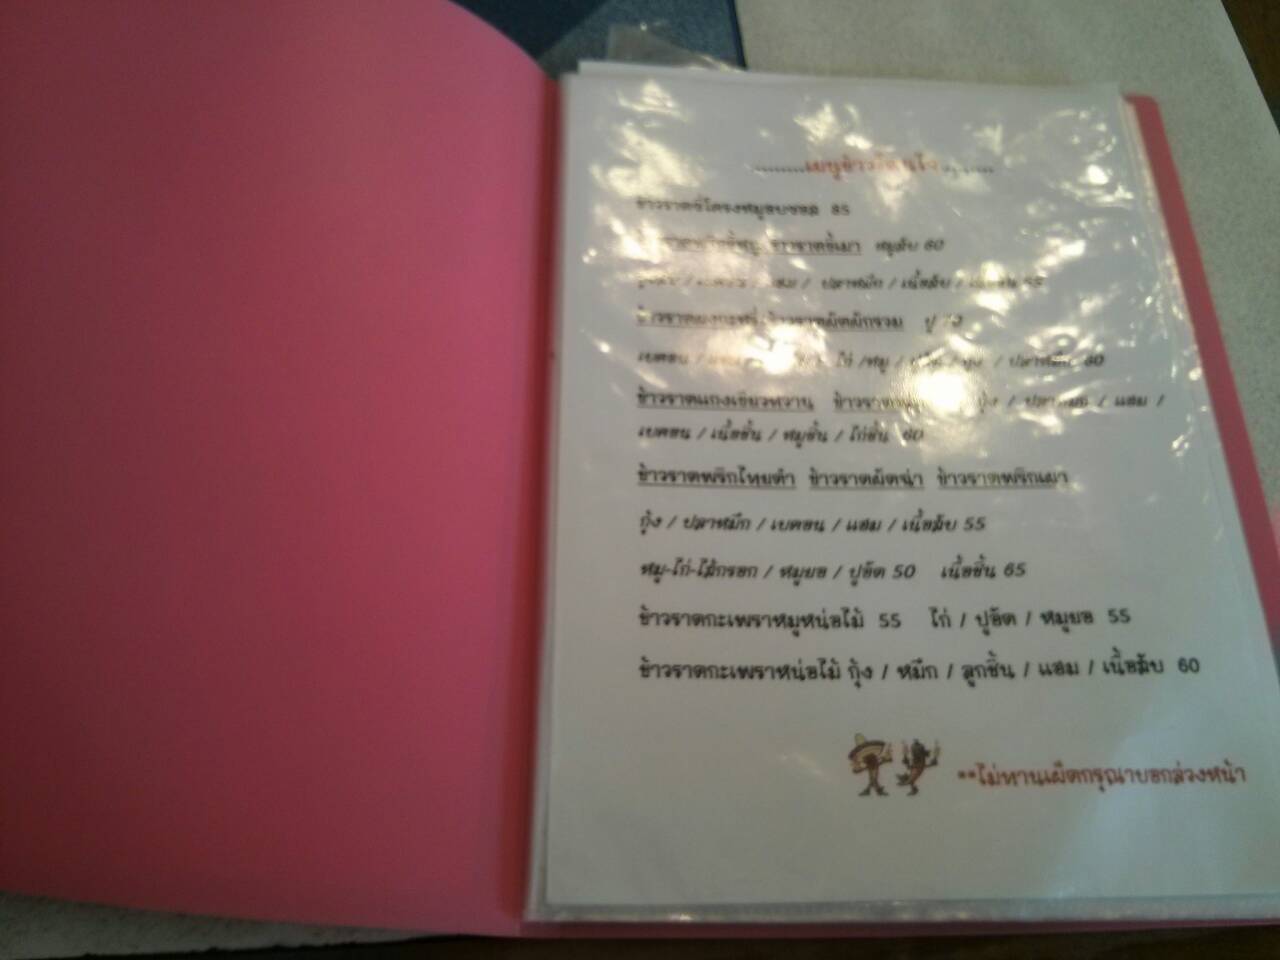 ข้าวราดซี่โครงหมูอบซอส 85
ข้าวราดขี้เมา หมูสับ 60
แฮม / ปลาหมึก / เนื้อสับ / 55
ข้าวราดผงกะหรี่ ข้าวราดผัดผักรวม ปู 70
เบคอน / ไก่ / หมู / ปูอัด / กุ้ง / ปลาหมึก 60
ข้าวราดแกงเขียวหวาน กุ้ง / ปลาหมึก / แฮม /
เบคอน / เนื้อชิ้น / หมูชิ้น / ไก่ชิ้น 60
ข้าวราดพริกไทยดำ ข้าวราดผัดฉ่า ข้าวราดพริกเผา
กุ้ง / ปลาหมึก / เบคอน / แฮม / เนื้อสับ 55
หมู-ไก่-ไส้กรอก / หมูยอ / ปูอัด 50 เนื้อชิ้น 65
ข้าวราดกะเพราหมูหน่อไม้ 55 ไก่ / ปูอัด / หมูยอ 55
ข้าวราดกะเพราหน่อไม้ กุ้ง / หมึก / ลูกชิ้น / แฮม / เนื้อสับ 60
**ไม่ทานเผ็ดกรุณาบอกล่วงหน้า